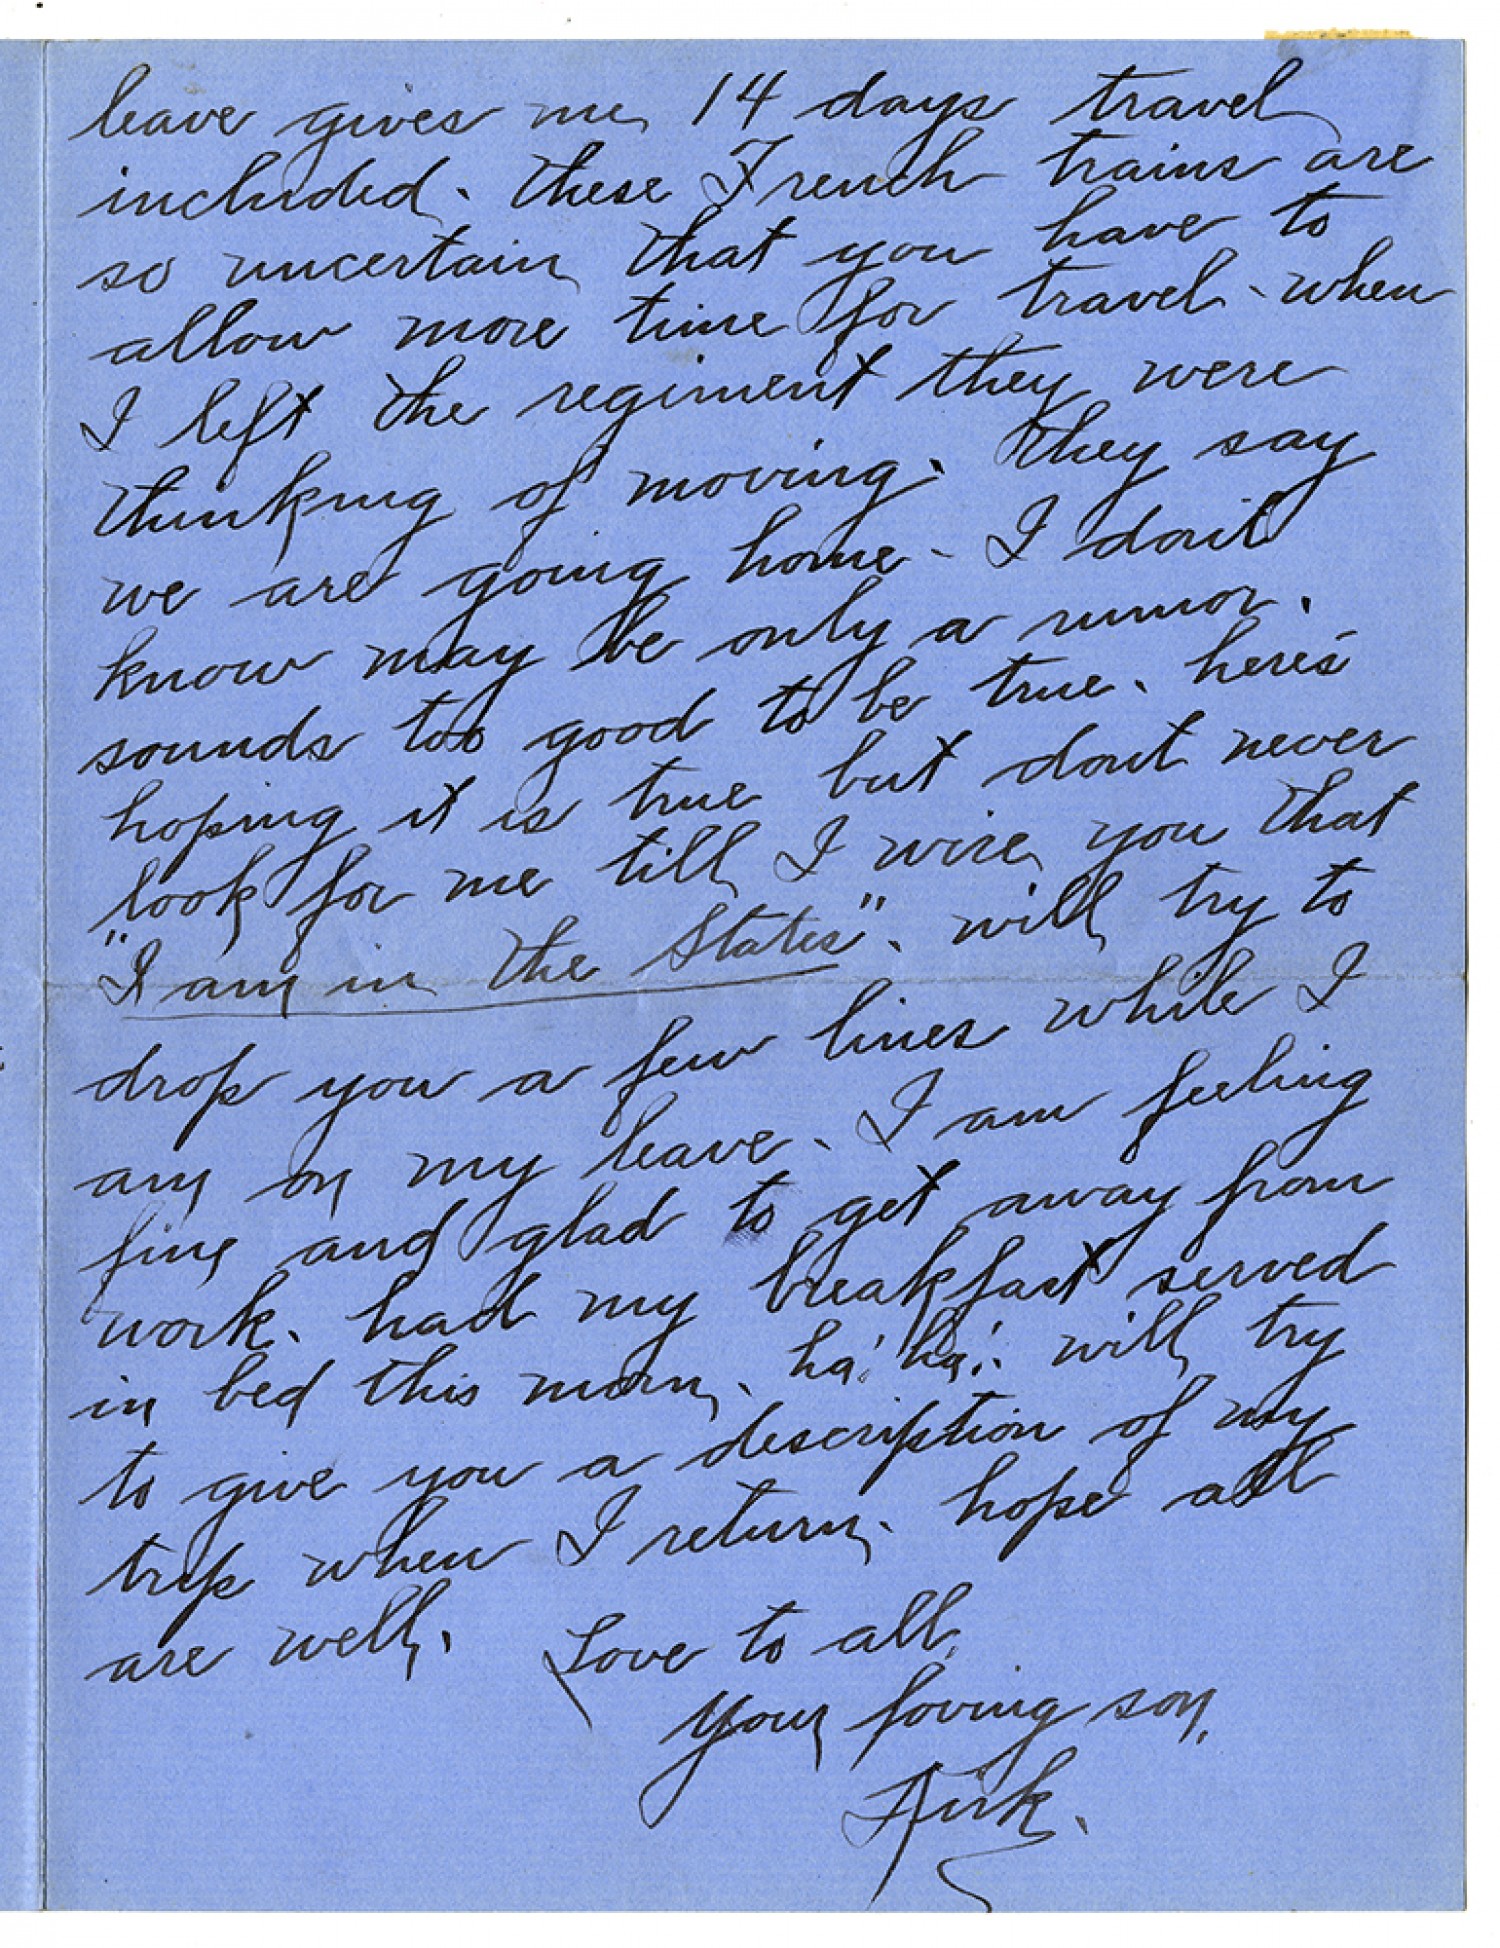 leave gives me 14 days travel
included. these French trains are
so uncertain that you have to
allow more time for travel. when
I left the regiment they were
thinking of moving. they say
we are going home. I don't
know may be only a rumor.
sounds too good to be true. here's
hoping it is true but dont never
look for me till I wire you that
"I am in the States". will try to
drop you a few lines while I
am on my leave. I am feeling
fine and glad to get away from
work. had my breakfast served
in bed this morn. ha! ha!. will try
to give you a description of my
trip when I return. hope all
are well. Love to all.
Your loving son,
Kirk.